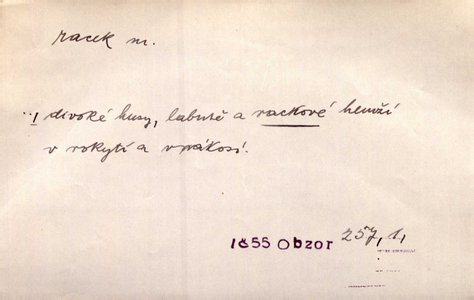 racek m.
divoké husy, labutě a rackové hemží
v rokytí a v rákosí.
1855 Obzor 257, 1,